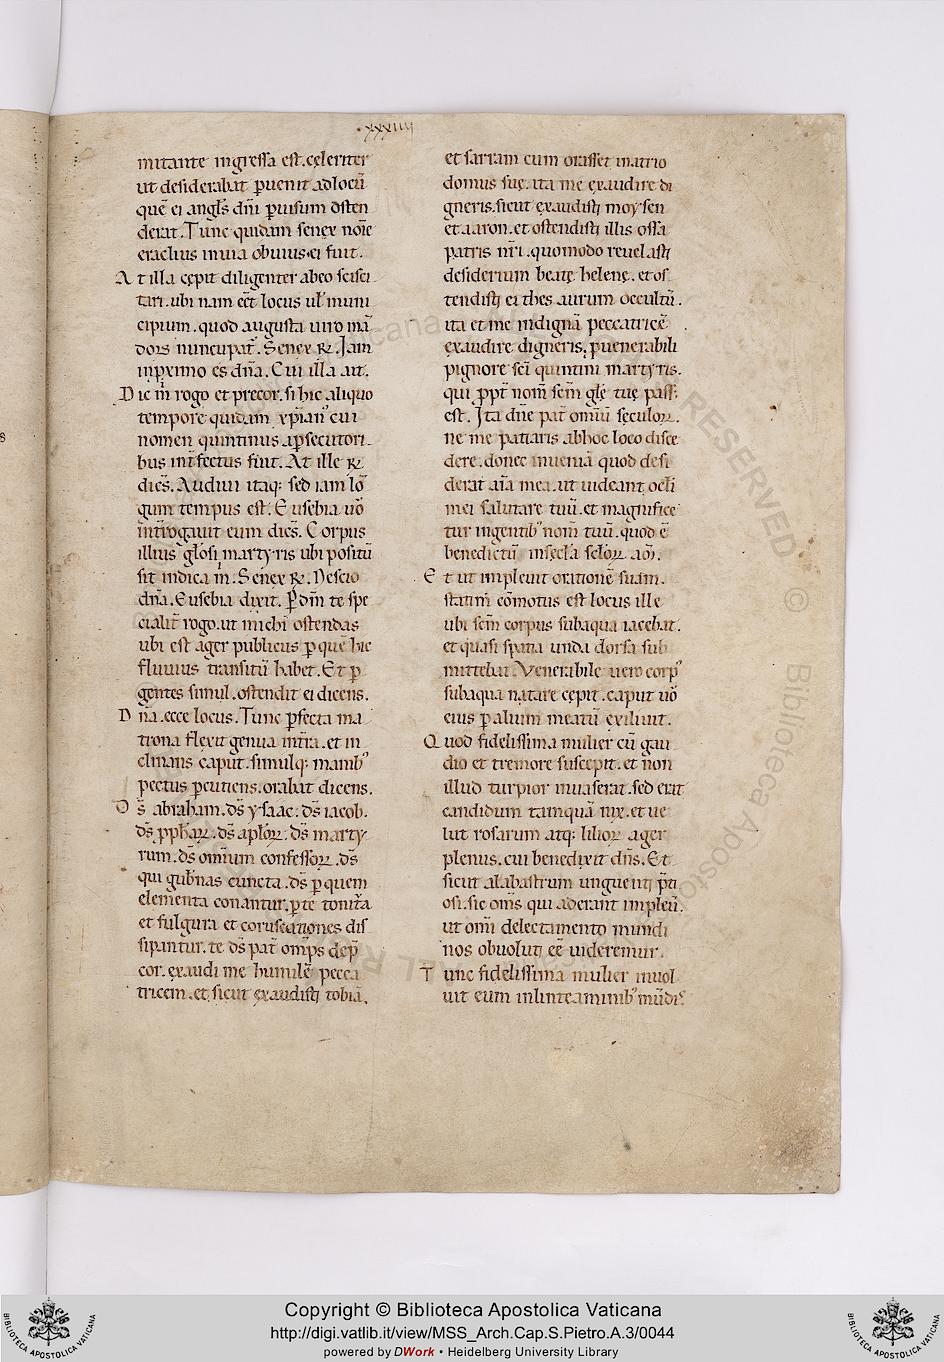 .xxxiiij
mitante ingressa est. cęleriter
ut desiderabat ꝑuenit ad locū
quē ei angl̄s dn̄i ꝑ uisum osten
derat. Tunc quidam senex noīe
eraclius in uia obuius ei fuit.
At illa cępit diligenter ab eo scisci
tari. ubi nam eēt locus ul̄ muni
cipium. quod augusta uiromā
dor̄ nuncupat̄. Senex ꝶ. Iam
in ꝓximo es dn̄a. Cui illa ait.
Dic m̄ rogo et precor. si hic aliquo
tempore quidam xp̄ianꝰ cui
nomen quintinus a ꝑsecutori
bus int̄fectus fuit. At ille ꝶ
dicēs. Audiui itaq; sed iam lō
gum tempus est. Eusebia uō
int̄rogauit eum dicēs. Corpus
illius gl̄osi martyris ubi positū
sit indica m̄. Senex ꝶ. Nescio
dn̄a. Eusebia dixit. Ꝑ dn̄m te spe
cialit̄ rogo. ut michi ostendas
ubi est ager publicus ꝑ quē hic
fluuius transitū habet. Et ꝑ
gentes simul. ostendit ei dicens.
Dn̄a. ecce locus. Tunc ꝑfecta ma
trona flexit genua in t̄ra. et in
clinans caput. simulq; manibꝰ
pectus ꝑcutiens. orabat dicens.
Ds̄ abraham. ds̄ ysaac. ds̄ iacob.
ds̄ ꝓphaꝝ. ds̄ aplōꝝ. ds̄ marty
rum. ds̄ omnium confessoꝝ. ds̄
qui gub̄nas cuncta. ds̄ ꝑ quem
elementa conantur. ꝑ te tonit̄a
et fulgura et coruscationes dis
sipantur. te ds̄ pat̄ omp̄s dep̄
cor. exaudi me humilē pecca
tricem. et sicut exaudisti tobiā.
et sarram cum orasset in atrio
domus suę. ita me exaudire di
gneris. sicut exaudisti moysen
et aaron. et ostendisti illis ossa
patris nr̄i. quomodo reuelasti
desiderium beatę helenę. et os
tendisti ei thesaurum occultū.
ita et me indignā peccatricē
exaudire digneris. ꝓ uenerabili
pignore sc̄i quintini martyris.
qui ꝓpt̄ nom̄ sc̄m gl̄ę tuę pass̄
est. Ita dn̄e pat̄ omīū sęculoꝝ.
ne me patiaris ab hoc loco disce
dere. donec inueniā quod desi
derat aīa mea. ut uideant ocl̄i
mei salutare tuū. et magnifice
tur in gentibꝰ nom̄ tuū. quod ē
benedictū in sęcl̄a scl̄oꝝ am̄.
Et ut impleuit orationē suam.
statim cōmotus est locus ille
ubi sc̄m corpus sub aqua iacebat.
et quasi spatia unda dorsa sub
mittebat. Venerabile uero corpꝰ
sub aqua natare cępit. caput uō
eius ꝑ alium meatū exiliuit.
Quod fidelissima mulier cū gau
dio et tremore suscepit. et non
illud turpior inuaserat. sed erat
candidum tamquā nix. et ue
lut rosarum atq; lilioꝝ ager
plenus. cui benedixit dn̄s. Et
sicut alabastrum unguenti p̄ti
osi. sic om̄s qui aderant impleū.
ut omī delectamento mundi
nos obuoluti eē uideremur.
Tunc fidelissima mulier inuol
uit eum in linteaminibꝰ mūdiꝰ
Copyright © Biblioteca Apostolica Vaticana
http://digi.vatlib.it/view/MSS_Arch.Cap.S.Pietro.A.3/0044
powered by DWork • Heidelberg University Library
BIBLIOTECA APOSTOLICA VATICANA
BIBLIOTECA APOSTOLICA VATICANA